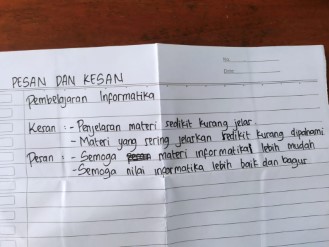 No.
Date.
PESAN DAN KESAN
Pembelajaran Informatika
Kesan : - Penjelasan materi sedikit kurang jelas.
- Materi yang sering jelaskan sedikit kurang dipahami
Pesan : - Semoga materi informatika lebih mudah
- Semoga nilai informatika lebih baik dan bagus